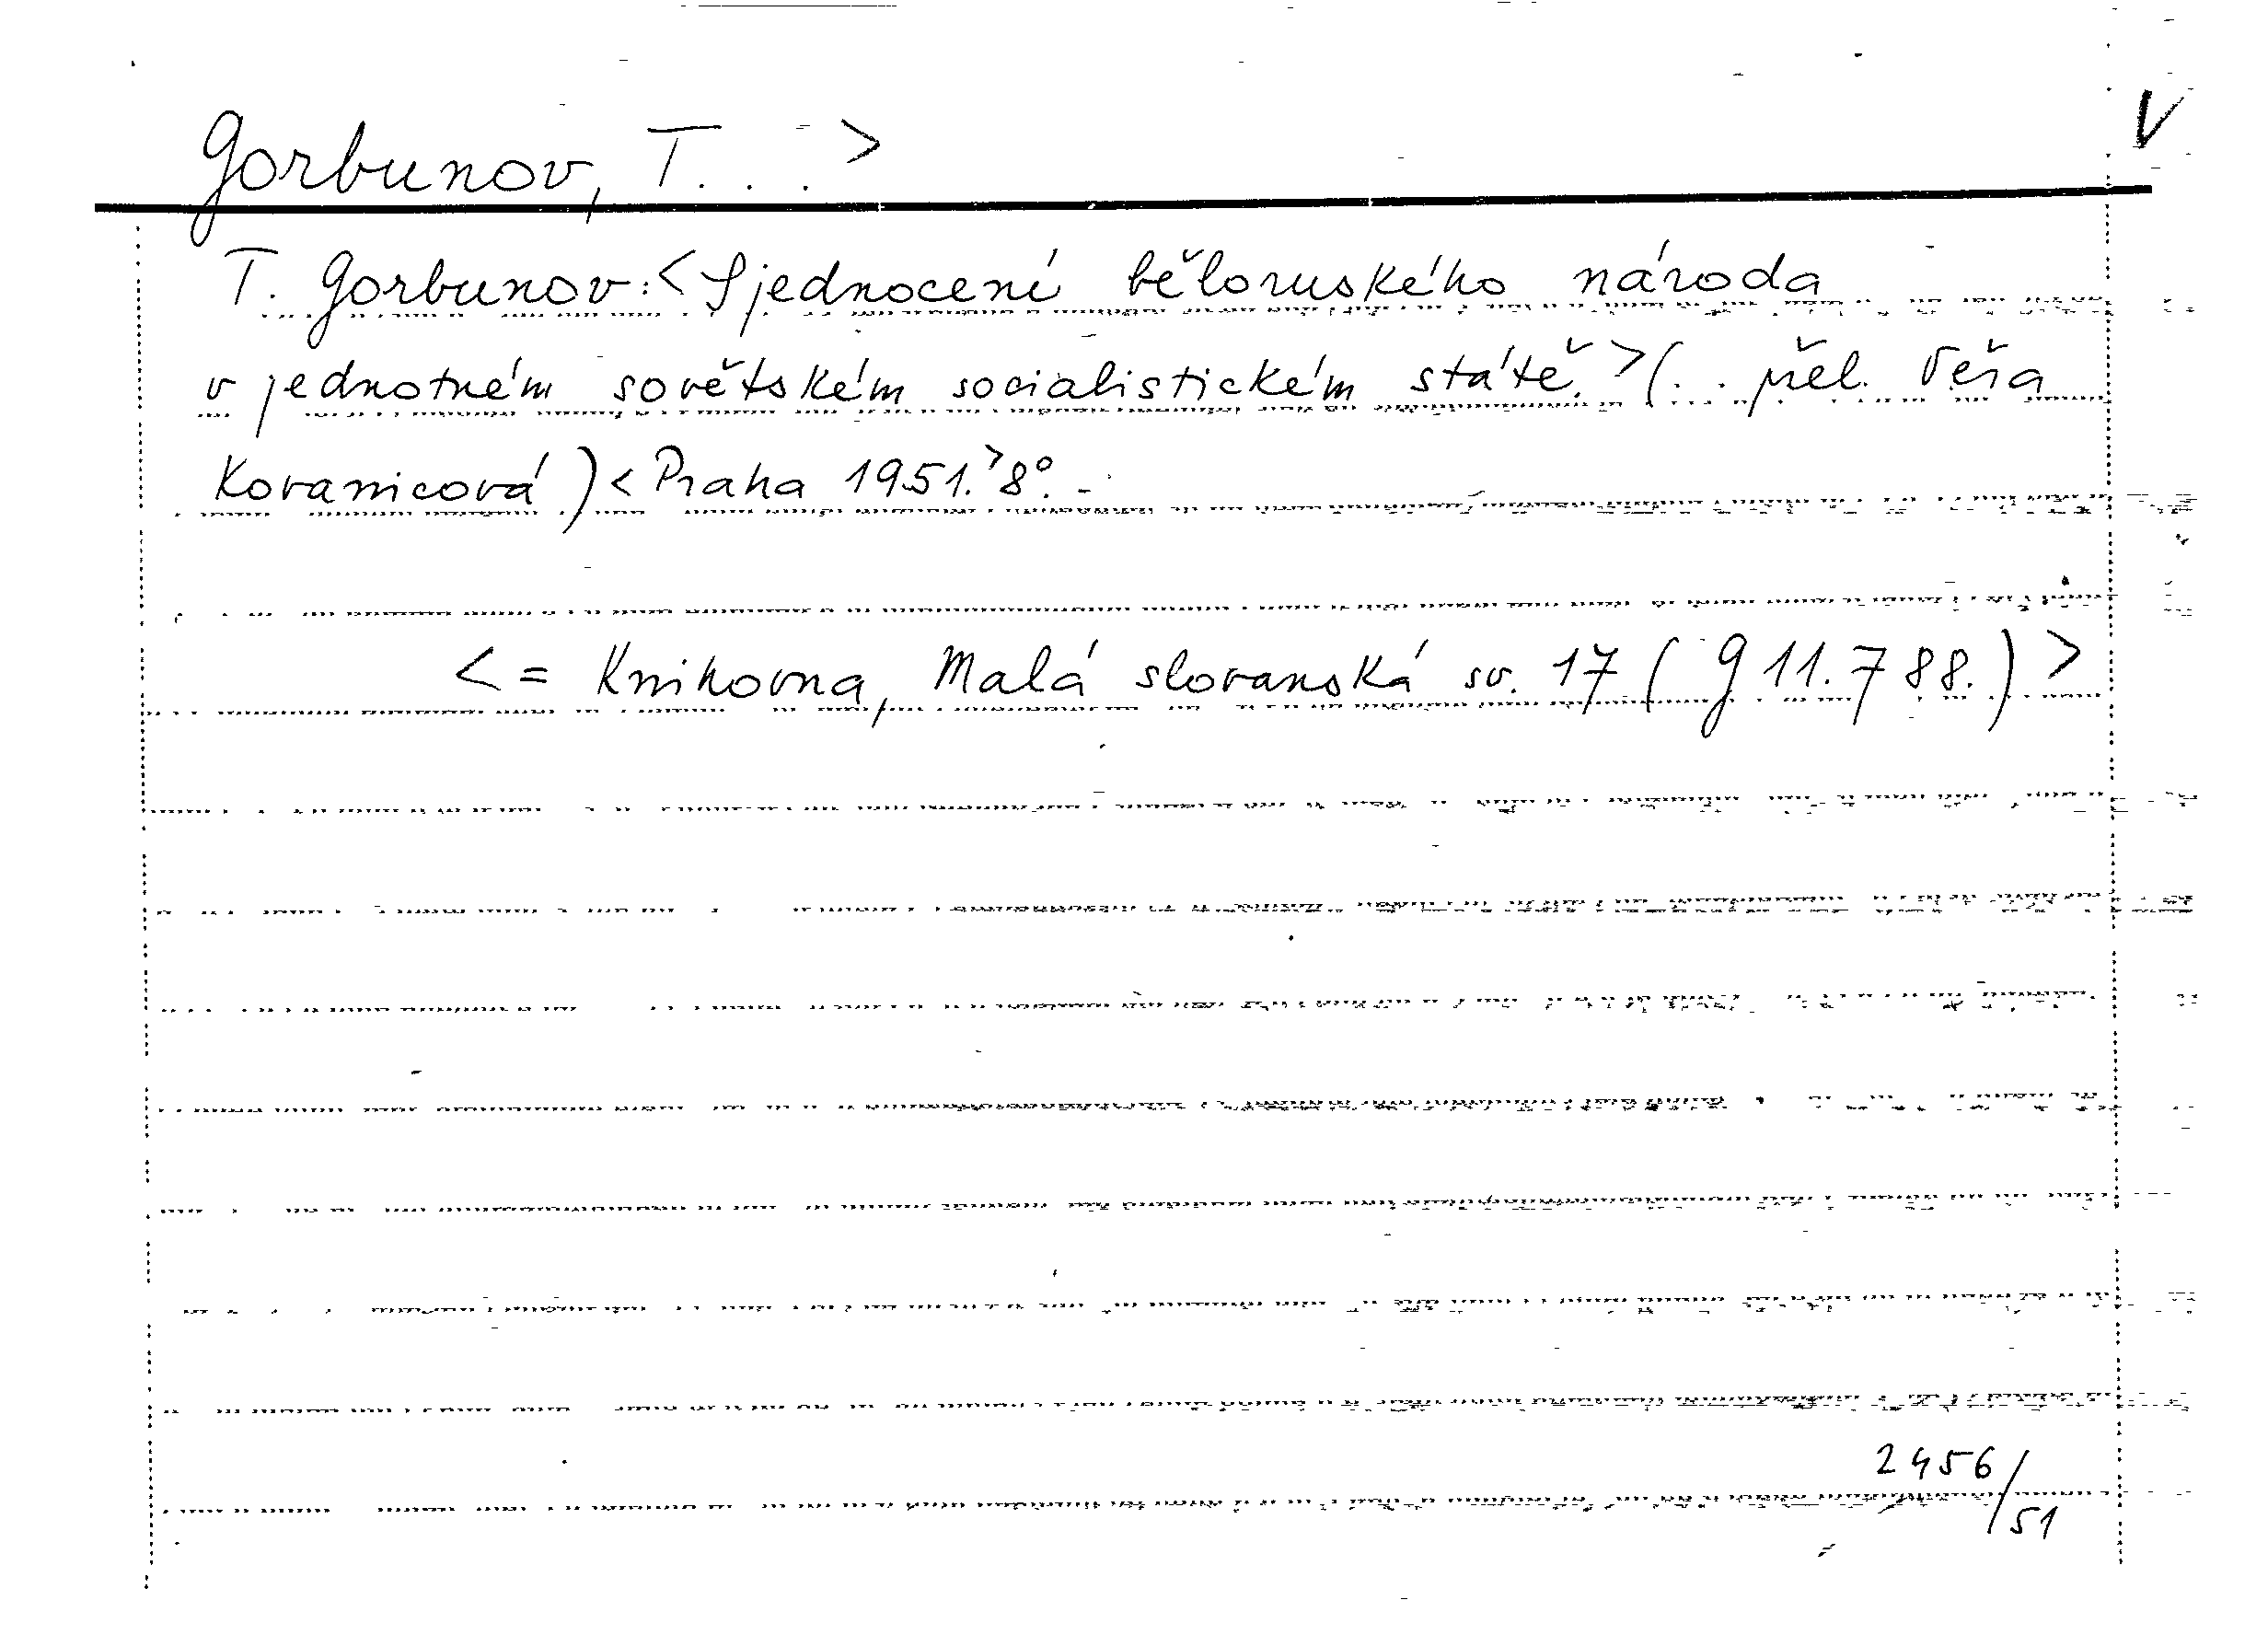 Gorbunov, T. . . > V
T. Gorbunov: < Sjednocení běloruského národa
v jednotném sovětském socialistickém státě. > (. . přel. Věra
Kovanicová ) < Praha 1951. > 8°. -
< = Knihovna, Malá slovanská sv. 17 ( g 11.788. ) >
2456/51